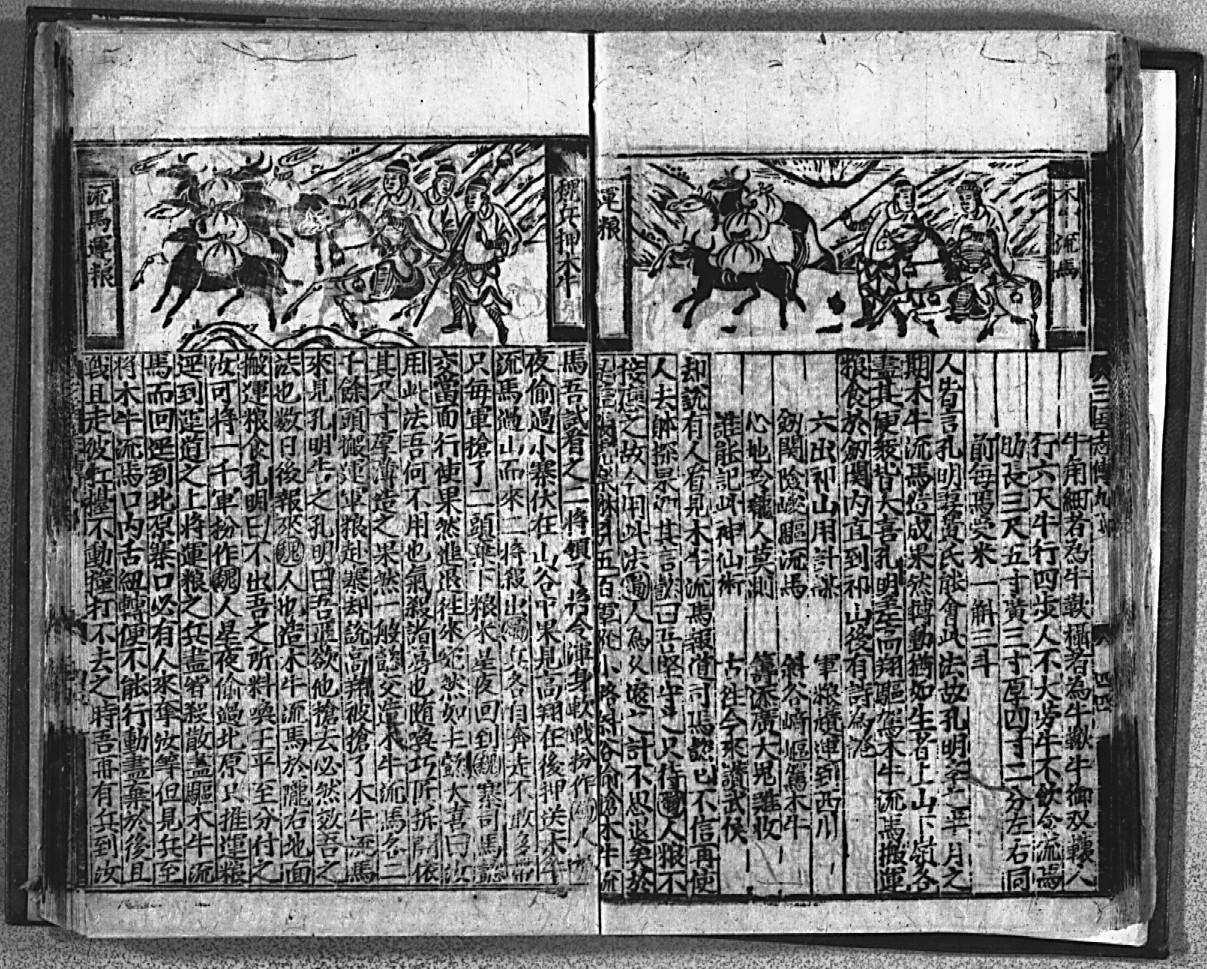 木牛流馬
運粮
三国志傳九卷
牛角細者為牛鞅橋者為牛鞦牛御双轅人
行六尺牛行四步人不大劳牛不飲食流馬
肋長三尺五寸廣三寸厚四寸二分左右同
前每馬受米一斛三斗
人皆言孔明 黃氏能會此法故孔明 半月之
期木牛流馬造成果然轉動猶如生者上山下嶺各
盡其便眾皆大喜孔明 高翔驅駕木牛流馬搬運
粮食於劍関内直到祁山後有詩為
六出祁山用計謀 軍粮搬運到西川
劍関險峻驅流馬 斜谷崎嶇駕木牛
心地玲瓏人莫測 廣大鬼難收
誰能記此神仙術 古往今來讃武侯
却說有人看見木牛流馬報 司馬懿懿不信再使
人去体探果如其言懿曰吾堅守之只待蜀人粮不
接 之故今用此法蜀人為久遠之計不思退矣於
五百軍 小路 谷偷搶木牛流
魏兵押木牛
流馬運粮
馬吾試看之二將領了將令渾身軟戰扮作蜀人
夜偷過小寨伏在山谷中果見高翔在後押送木牛
流馬過山而來二將殺出蜀兵各自奔走不敢
只每軍搶了一頭棄下粮米星夜回到魏寨司馬懿
交當面行使果然進退往來宛然如生懿大喜曰汝
用此法吾何不用也氣殺諸葛也随喚巧匠拆開依
其尺寸厚薄造之果然一般懿交造木牛流馬各二
千餘頭搬運軍粮赴寨却說高翔被搶了木牛流馬
來見孔明告之孔明曰吾正欲他搶去必然效吾之
法也数日後報來魏人也造木牛流馬於隴右地面
搬運粮食孔明曰不出吾之所料喚王平至分付之
汝可將一千軍扮作魏人星夜偷過北原只推運粮
逕到 道之上將運粮之兵盡皆殺散盡驅木牛流
馬而回逕到北原寨口必有人來奪汝等但見兵至
將木牛流馬口内舌紐轉便不能行動盡棄於後且
戰且走彼扛擡不動 打不去之時吾再有兵到汝